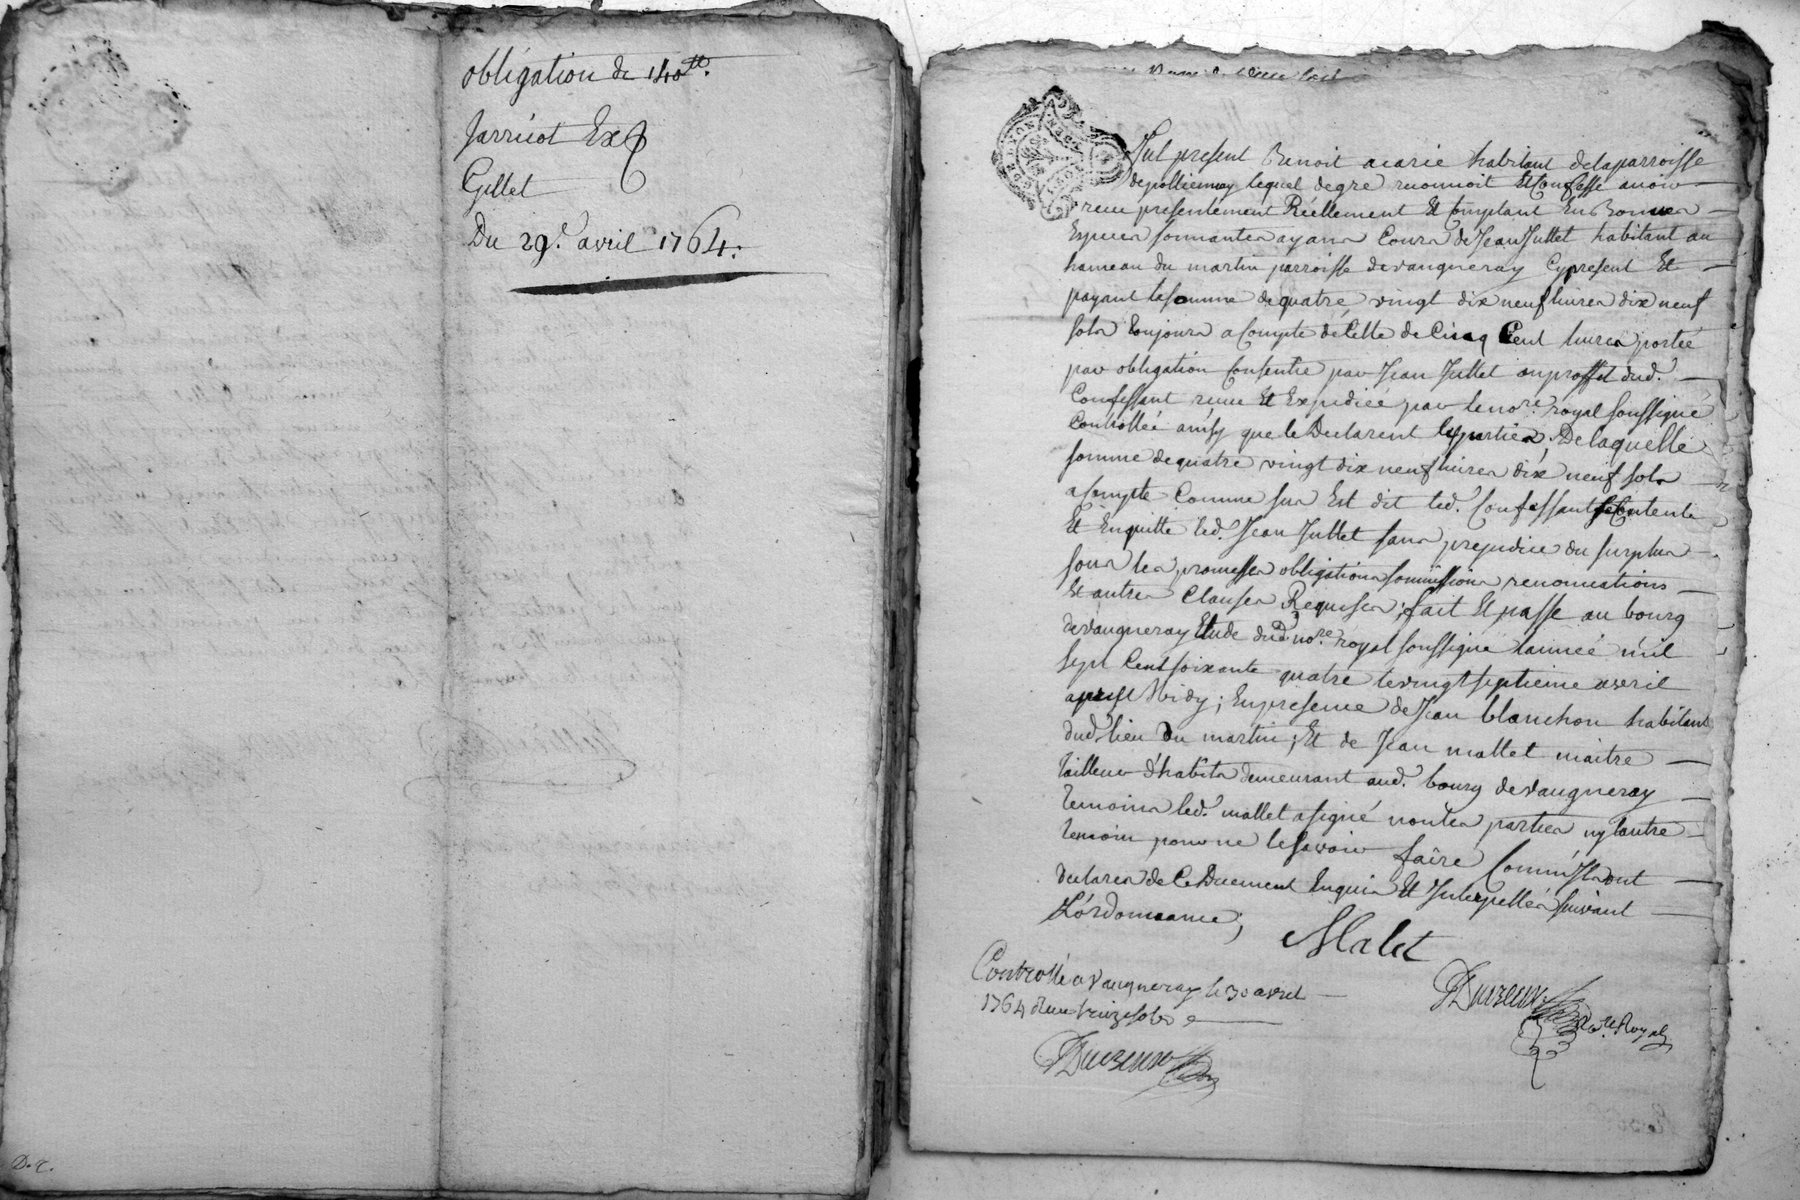 obligation de 140tt.
Jarricot Ex
Gillet
Du 29e. avril 1764.
D. C.
fut present Benoit acarie habitant delaparroisse
depollienay lequel degre reconnoit Et Confesse avoir
receu presentement Réellement Et Comptant En Bonnes
Especes sonnantes ayans Cours de Jean Jullet habitant au
hameau du martin parroisse devaugneray Cypresent Et
payant lasomme dequatre vingt dix neuf livres dix neuf
sols toujours a Compte de Celle de Cinq Cent livres portée
par obligation Consentie par Jean Jullet auproffit dud.
Confessant receue Et Expediée par lenore. royal soussigné
Controllée ainsy que le Declarent lesparties, De laquelle
somme dequatre vingt dix neuf livres dix neuf sols
a Compte Comme sus Est dit led. Confessant se Contente
Et Enquitte led. Jean Jullet sans prejudice du surplus
sous les promesses obligations soumissions renonciations
Et autres Clauses Requises; fait Et passé au bourg
devaugneray Etude dud. nore. royal soussigné l'année mil
sept Cent soixante quatre levingtseptieme avril
apres Midy; Enpresence de Jean blanchon habitant
dud. lieu Du martin; Et de Jean mallet maitre
tailleur d'habits demeurant aud. bourg devaugneray
temoins led. mallet asigné nonles parties ny lautre
temoin pour ne lesavoir faire Comm'ilsont
declarés de Ce Duement Enquis Et Interpellés suivant
L'ordonnance;
Malet
Controllé a Vaugneray le 30 avril
1764 Reçu treize sols
Duvzeux
Duvzeux
No.re Royal